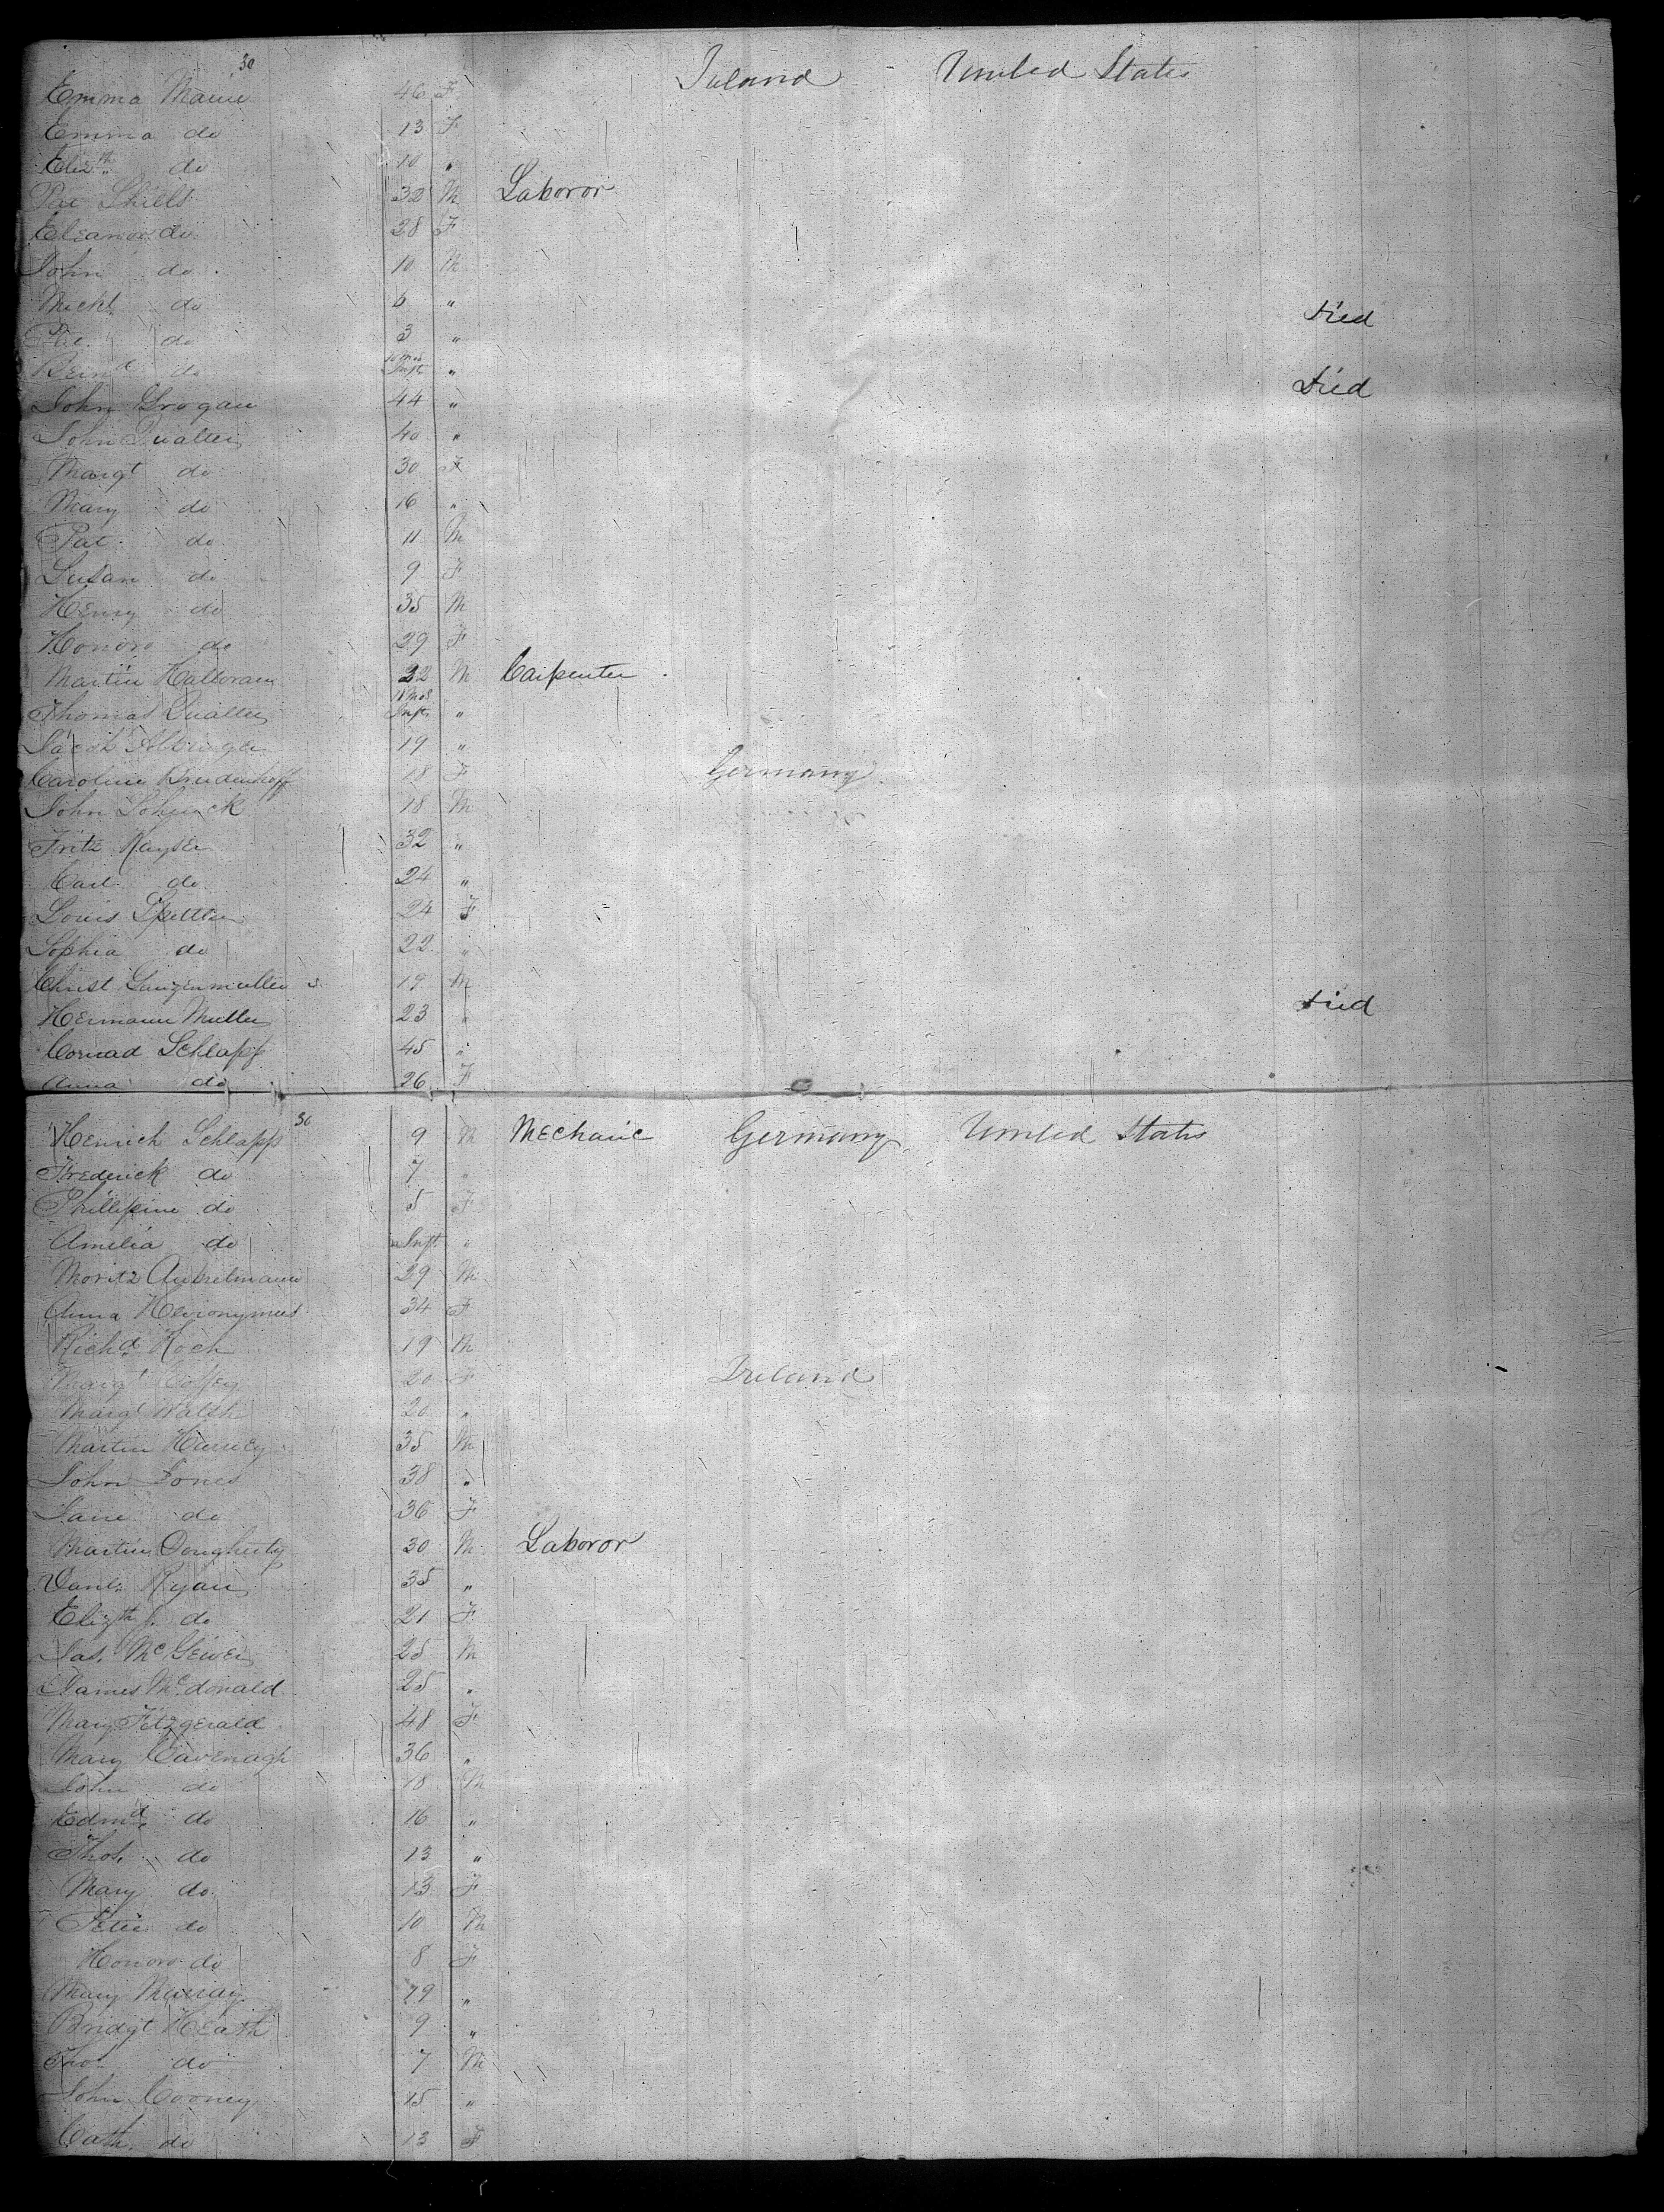 30
Emma Mauu 46 F Ireland United States
Emma do 13 F
Elizth do 10 "
Pat Shills 32 M Laboror
Eleanor do 28 F
John do 10 M
Michl do 6 " Died
do 3 "
Bernd do 10 Mos Inft "
John Grogan 44 " Died
John Qualter 40 "
Margt do 30 F
Mary do 16 "
Pat do 11 M
Susan do 9 F
Henry do 35 M
Honoro do 29 F
Martin Halloran 22 M Carpenter
Thomas Qualter 18 Mos Inft "
Jacob 19 "
Caroline 18 F Germany
John Schunck 18 M
Fritz Kayser 32 "
Carl do 24 "
Louis 24 F
Sophia do 22 "
Christ Ganzenmuller 19 M
Hermann Muller 23 " Died
Conrad Schlapp 45 "
Anna do 26 F
30
Henrich Schlapp 9 M Mechanic Germany United States
Frederick do 7 "
Phillipine do 5 F
Amelia do Inft "
Moritz 29 M
Anna Hieronymus 34 F
Richd Koch 19 M
Margt Coffey 20 F Ireland
Margt Walsh 20 "
Martin 35 M
John Jones 38 "
Jane do 36 F
Martin Dougherty 30 M Laboror
Danl Ryan 35 "
Elizth do 21 F
Jas. 25 M
James McDonald 25 "
Mary Fitzgerald 48 F
Mary Cavenagh 36 "
John do 18 M
Edmd do 16 "
Thos. do 13 "
Mary do 13 F
Peter do 10 M
Honoro do 8 F
Mary Murray 79 "
Bridgt Heath 9 "
Thos do 7 M
John Cooney 15 "
Cath. do 13 F